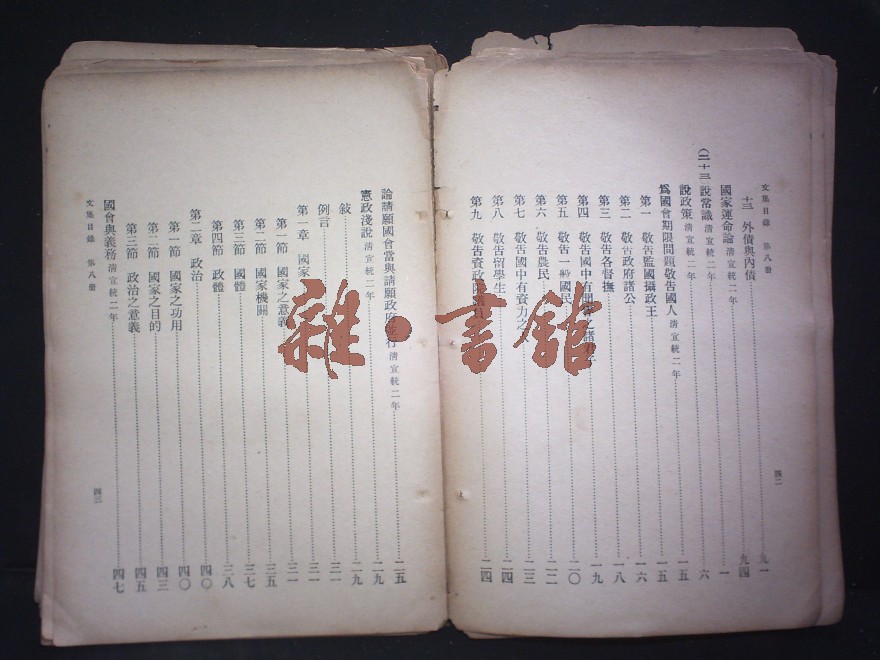 文集目錄 第八册
十三 外債與內債 九一
國家運命論 清宣統二年 九四
(二十三)說常識 清宣統二年 一
說政策 清宣統二年 六
為國會期限問題敬告國人 清宣統二年 一五
第一 敬告監國攝政王 一五
第二 敬告政府諸公 一六
第三 敬告各督撫 一八
第四 敬告國中有 之諸 一九
第五 敬告一般國民 二〇
第六 敬告農民 二二
第七 敬告國中有資力之 二三
第八 敬告留學生 二四
第九 敬告資政院議員 二四
四二
論請願國會當與請願政府 行 清宣統二年 二五
憲政淺說 清宣統二年 二九
敍 二九
例言 三一
第一章 國家 三一
第一節 國家之意義 三一
第二節 國家機關 三五
第三節 國體 三七
第四節 政體 三八
第二章 政治 四〇
第一節 國家之功用 四〇
第二節 國家之目的 四三
第三節 政治之意義 四五
國會與義務 清宣統二年 四七
文集目錄 第八册
四三
雜·書舘